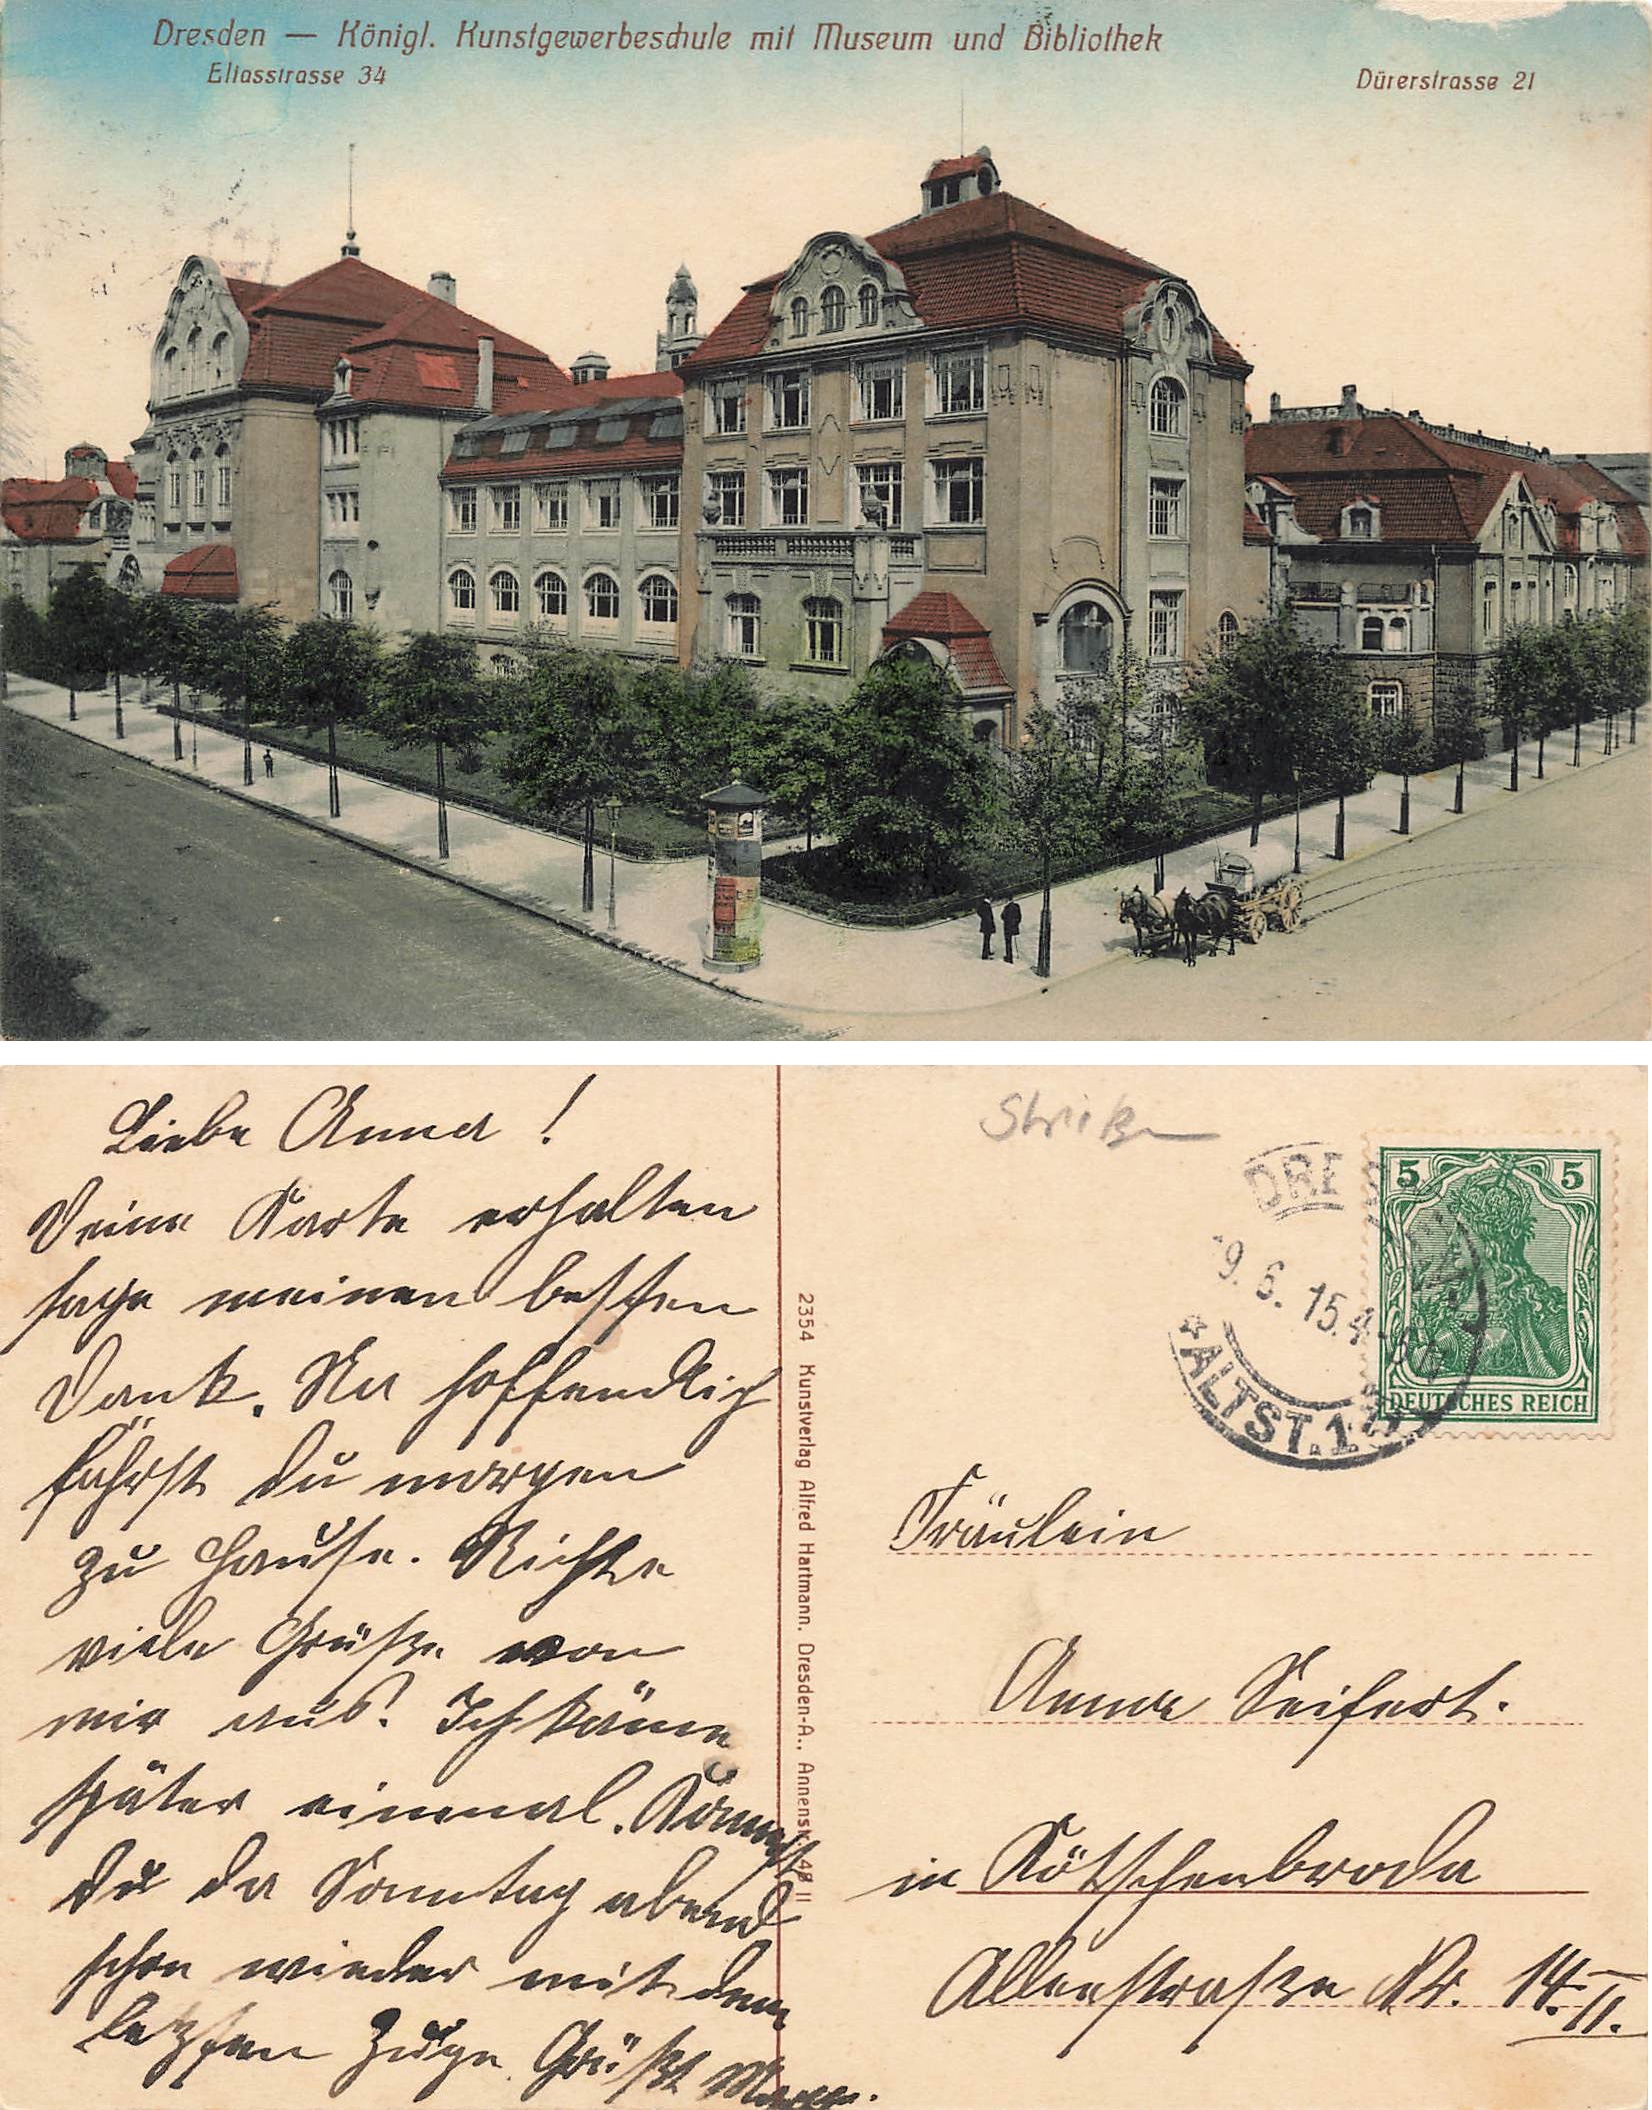 Dresden — Königl. Kunstgewerbeschule mit Museum und Bibliothek
Eliasstrasse 34
Dürerstrasse 21
Liebe Anna!
Deine Karte erhalten
sage meinen besten
Dank. Na hoffendlich
fährst du morgen
zu Hause. Richte
viele Grüße von
mir aus. Ich käme
später einmal. Kommst
du da Sonntag abend
schon wieder mit dem
letzten Zuge. Grüßt
2354 Kunstverlag Alfred Hartmann, Dresden-A., Annenstr. 48 II
DRESDEN
9.6.15.4
*ALTST.1
5 5
DEUTSCHES REICH
Fräulein
Anna Seifert.
in Kötschenbroda
Alleestraße Nr. 14. II.